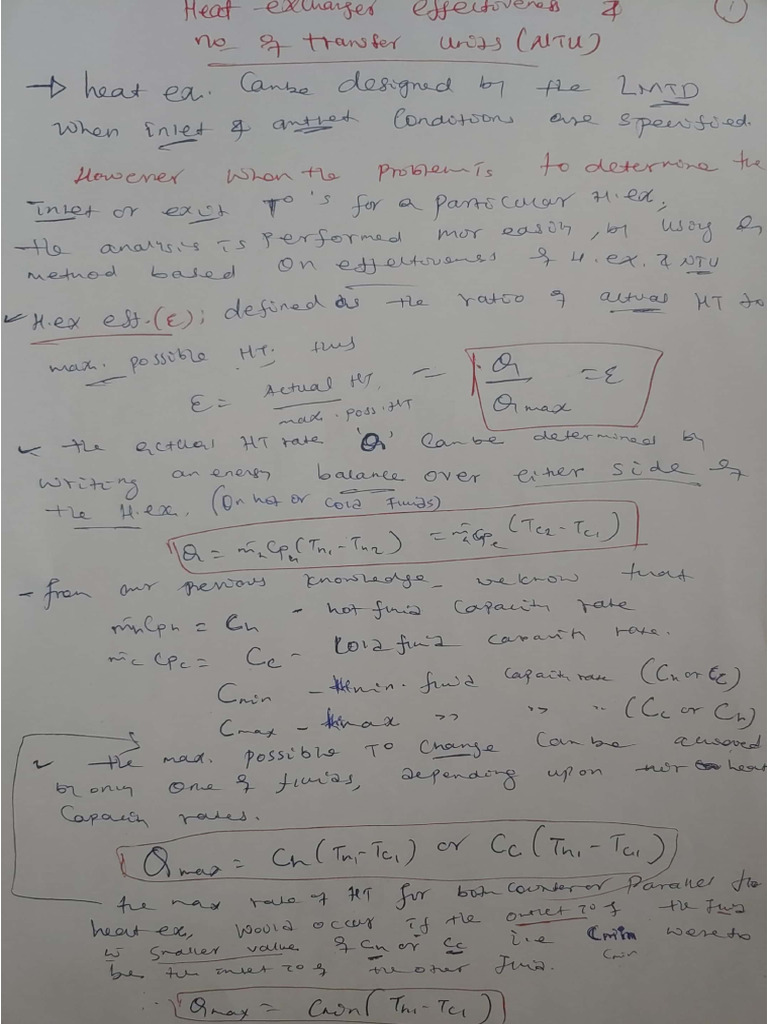 Heat exchanger effectiveness & (1)
no of transfer units (NTU)
→ heat ex. Can be designed by the LMTD
when inlet & outlet Conditions are specified.
However when the problem is to determine the
inlet or exit T°'s for a particular H.ex,
the analysis is performed mor easily, by using a
method based on effectiveness of H.ex. & NTU
✓ H.ex eff.(ε); defined as the ratio of actual HT to
max. possible HT. thus
ε = Actual HT / max. poss. HT = Q / Qmax = ε
✓ the actual HT rate 'Q' Can be determined by
writing an energy balance over either side of
the H.ex. (On hot or cold Fluids)
Q = ṁh Cph (Th1 - Th2) = ṁc Cpc (Tc2 - Tc1)
- from our previous knowledge we know that
ṁh Cph = Ch - hot fluid Capacity rate
ṁc Cpc = Cc - Cold fluid Capacity rate.
Cmin - min. fluid Capacity rate (Ch or Cc)
Cmax - max ,, ,, ,, (Cc or Ch)
✓ the max. possible T° Change Can be achieved
by only one of fluids, depending upon their heat
Capacity rates.
Qmax = Ch (Th1 - Tc1) or Cc (Th1 - Tc1)
the max rate of HT for both Counter or Parallel flo
heat ex, would occur if the outlet T° of the fluid
w smaller value of Ch or Cc i.e Cmin were to
Cmin
be the inlet T° of the other fluid.
∴ Qmax = Cmin (Th1 - Tc1)